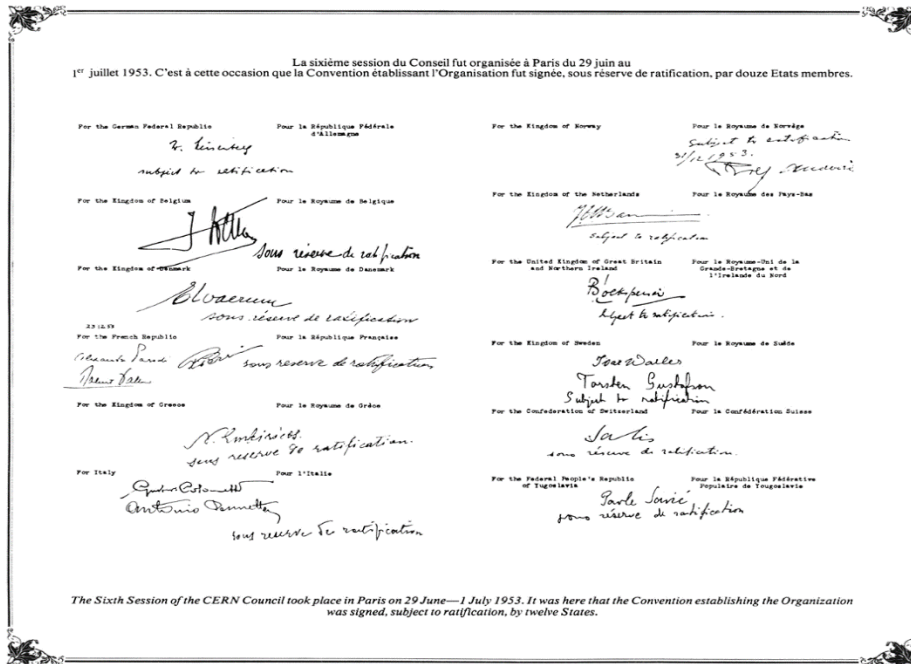 La sixième session du Conseil fut organisée à Paris du 29 juin au
1er juillet 1953. C'est à cette occasion que la Convention établissant l'Organisation fut signée, sous réserve de ratification, par douze Etats membres.
For the German Federal Republic
Pour la République Fédérale
d'Allemagne
W. Heisenberg
subject to ratification
For the Kingdom of Belgium
Pour le Royaume de Belgique
sous réserve de ratification
For the Kingdom of Denmark
Pour le Royaume de Danemark
sous réserve de ratification
23.12.53
For the French Republic
Pour la République Française
Alexandre Parodi
sous reserve de ratification
For the Kingdom of Greece
Pour le Royaume de Grèce
sous reserve de ratification.
For Italy
Pour l'Italie
Gustavo Colonnetti
Antonio Pennetta
sous reserve de ratification
For the Kingdom of Norway
Pour le Royaume de Norvège
Subject to ratification
31/12 1953.
For the Kingdom of the Netherlands
Pour le Royaume des Pays-Bas
subject to ratification
For the United Kingdom of Great Britain
and Northern Ireland
Pour le Royaume-Uni de la
Grande-Bretagne et de
l'Irlande du Nord
Subject to ratification.
For the Kingdom of Sweden
Pour le Royaume de Suède
Ivar Waller
Torsten Gustafson
Subject to ratification
For the Confederation of Switzerland
Pour la Confédération Suisse
Salis
sous réserve de ratification.
For the Federal People's Republic
of Yugoslavia
Pour la République Fédérative
Populaire de Yougoslavie
Pavle Savić
sous réserve de ratification
The Sixth Session of the CERN Council took place in Paris on 29 June—1 July 1953. It was here that the Convention establishing the Organization
was signed, subject to ratification, by twelve States.